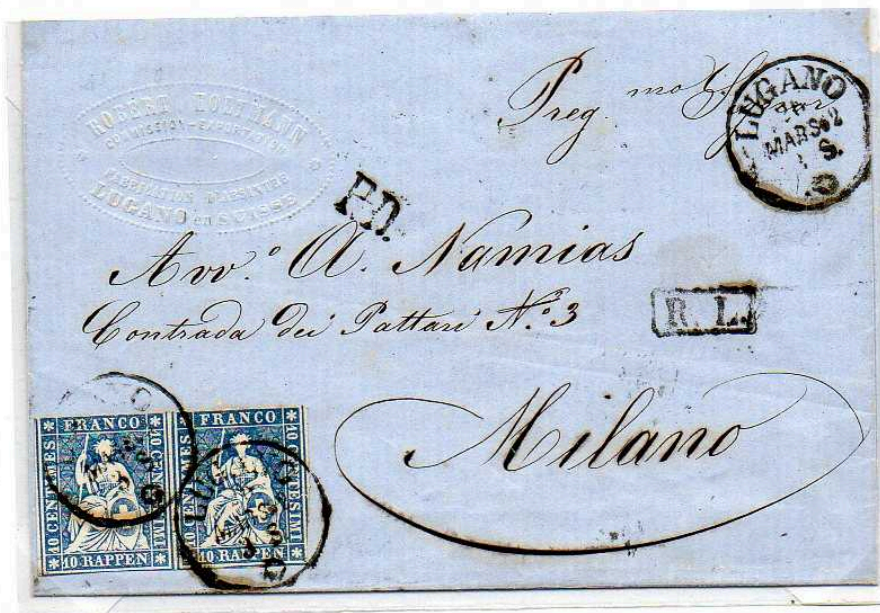 ROBERT DOLFMANN
COMMISSION-EXPORTATION
FABRICATION D'ABSINTHE
LUGANO en SUISSE
P.D.
Preg mo
LUGANO
MARS 62
S.
Avv.o A. Namias
Contrada dei Pattari N.o 3
R. L.
Milano
FRANCO
10 CENTIMES
10 CENTESIMI
10 RAPPEN
FRANCO
10 CENTIMES
10 CENTESIMI
10 RAPPEN
LUGANO